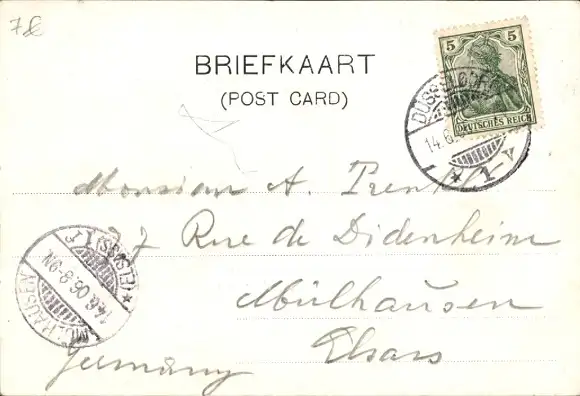 78
BRIEFKAART
(POST CARD)
5 5
DEUTSCHES REICH
DÜSSELDORF
14.6.
* 1 v
Monsieur A.
27 Rue de Didenheim
Mülhausen
Elsass
Germany
MÜLHAUSEN
14.6.06.8-9N.
*(ELSASS) 1 r